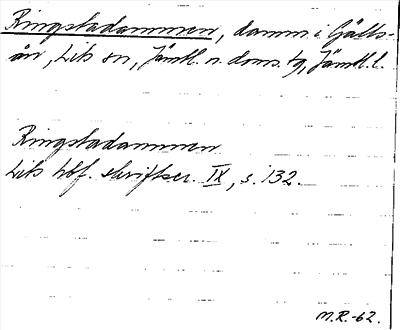 Ringstadammen, damm i Gälls-
ån, Lits sn, Jämtl. n. doms. tg, Jämtl. l.
Ringstadammen
Lits hbf. skriftser. IX, s. 132.
M.R.-62.